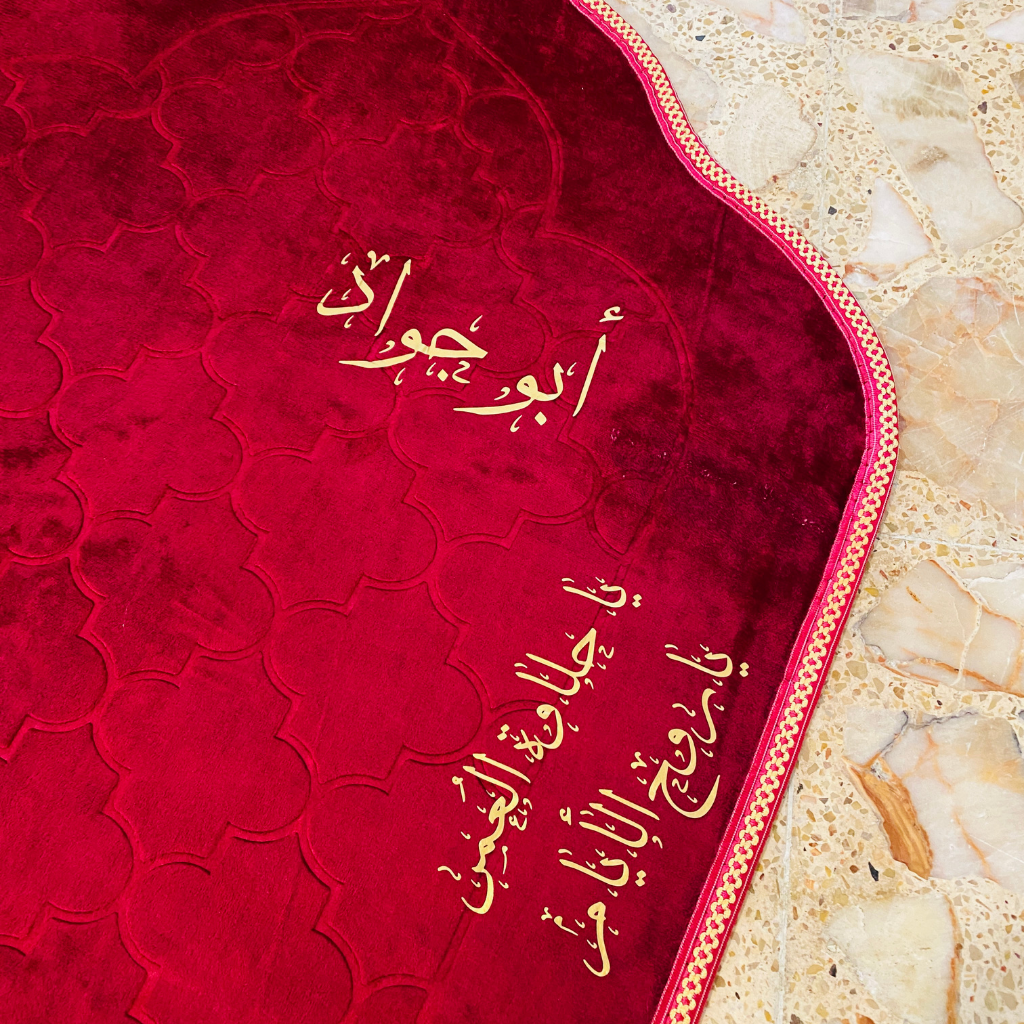 أبو جواد
يا حلاوة العُمر
يا روح الأيام